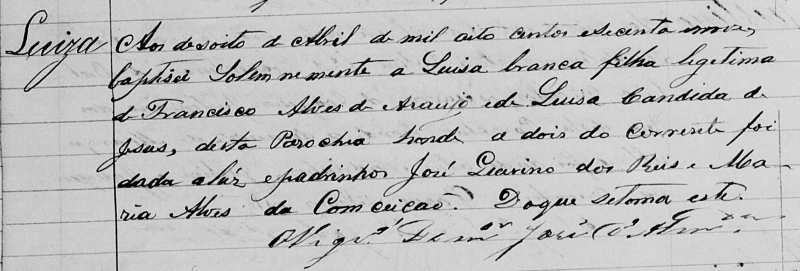 Luiza
Aos desoito de Abril de mil oito centos esecenta enove,
baptisei Solemnemente a Luisa branca filha legitima
de Francisco Alves de Araujo ede Luisa Candida de
Jesus, desta Parochia honde a dois do corrente foi
dada aluz epadrinhos José Leavino dos Reis e Ma-
ria Alves da Comceiçao. Doque setoma este.
O Vigr.º José